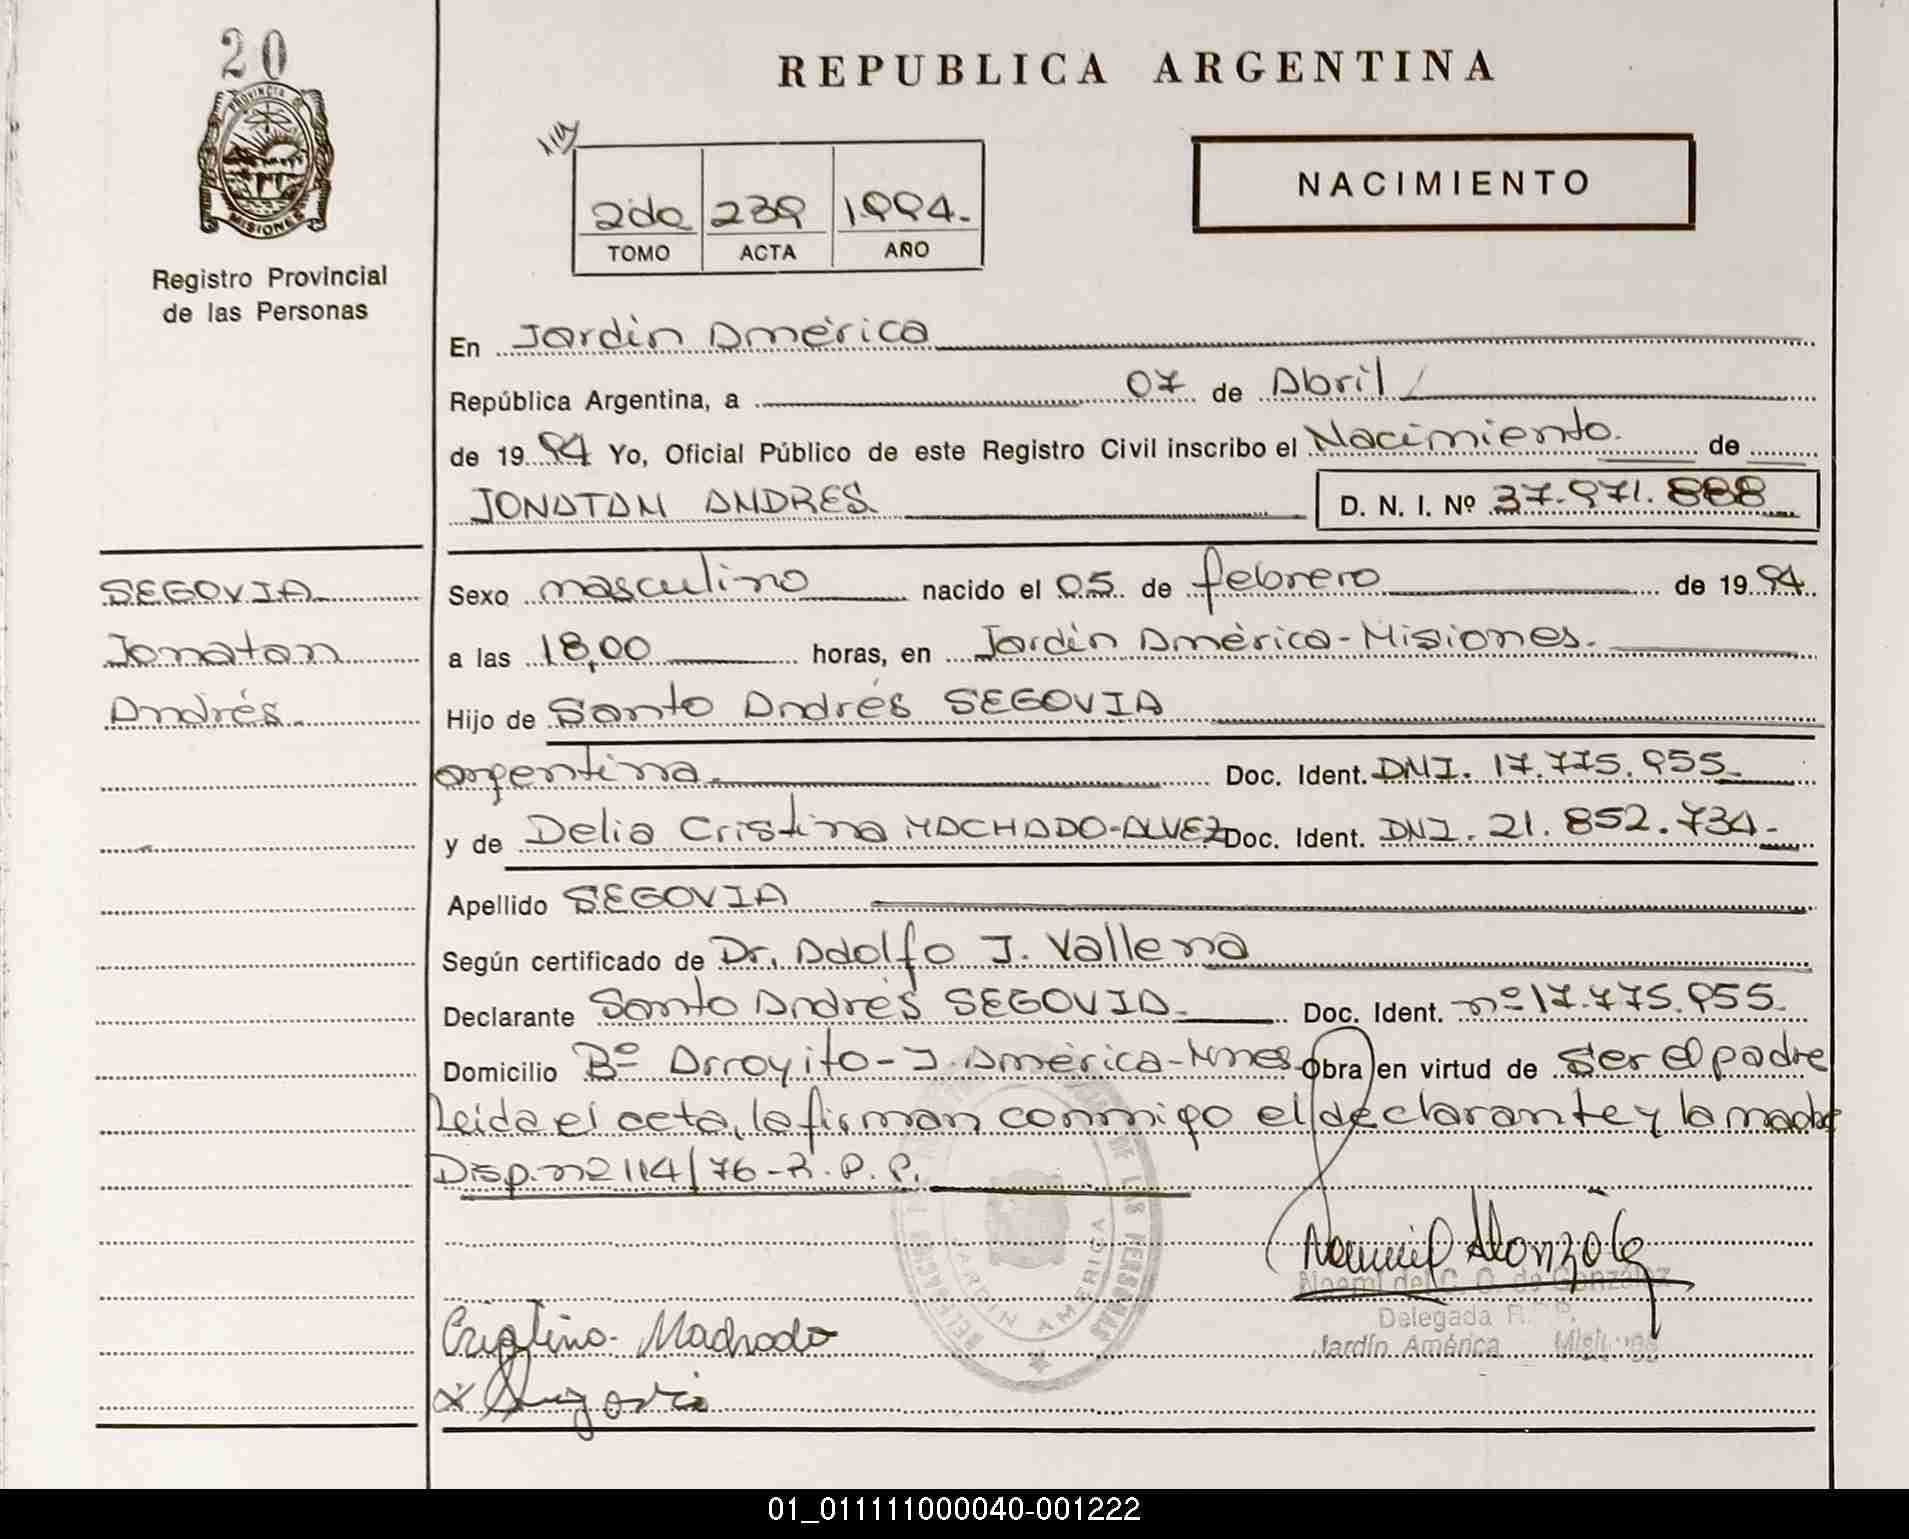 20
PROVINCIA DE
MISIONES
Registro Provincial
de las Personas
REPUBLICA ARGENTINA
2do 239 1.994.-
TOMO ACTA AÑO
NACIMIENTO
En Jardín América
República Argentina, a 07 de Abril
de 1994 Yo, Oficial Público de este Registro Civil inscribo el Nacimiento. de
JONATAN ANDRES D. N. I. Nº 37.971.888
SEGOVIA
Jonatan
Andrés.
Sexo masculino nacido el 05 de febrero de 1994.
a las 18,00 horas, en Jardín América-Misiones.
Hijo de Santo Andrés SEGOVIA
argentina. Doc. Ident. DNI. 17.775.955
y de Delia Cristina MACHADO-ALVEZ Doc. Ident. DNI. 21.852.734-
Apellido SEGOVIA
Según certificado de Dr. Adolfo J. Vallena
Declarante Santo Andrés SEGOVIA Doc. Ident. nº 17.775.955
Domicilio Bº Arroyito-J. América-Mnes Obra en virtud de Ser el padre
Leida el acta, la firman conmigo el declarante y la madre
Disp. nº 114/76-R.P.P.
DE LAS PERSONAS
JARDIN AMERICA
Noemi del C. G. de González
Delegada R.
Jardín América
Cristina Machado
Segovia
01_011111000040-001222